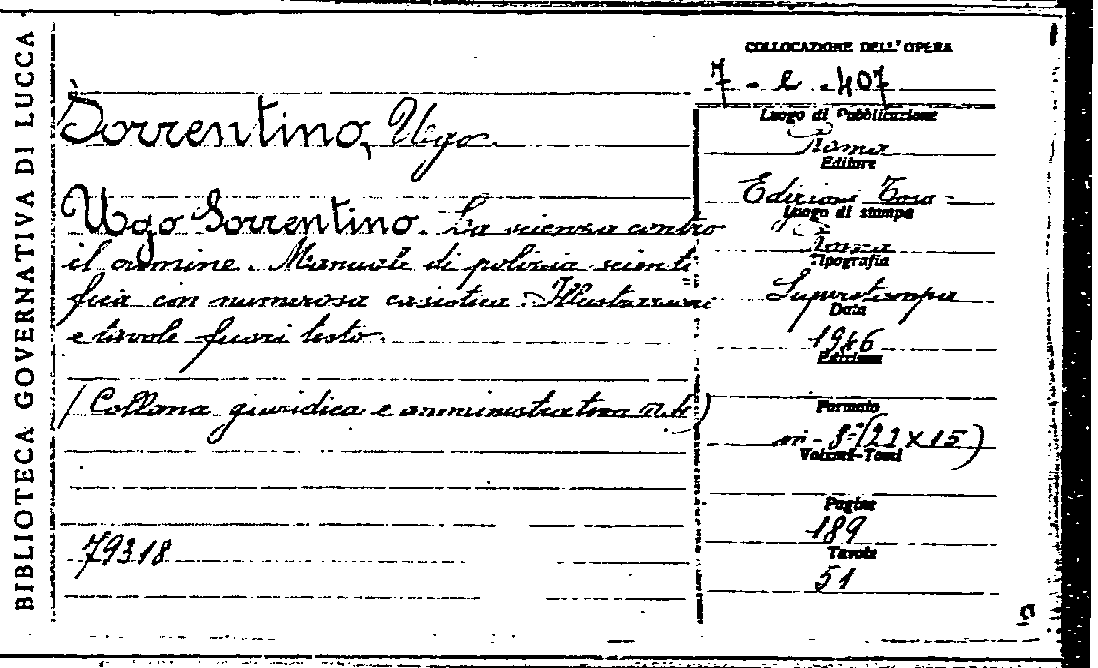 BIBLIOTECA GOVERNATIVA DI LUCCA
Sorrentino, Ugo.
Ugo Sorrentino. La scienza contro
il crimine. Manuale di polizia scienti
fica con numerosa casistica. Illustrazioni
e tavole fuori testo.
(Collana giuridica e amministrativa n.
79318
COLLOCAZIONE DELL'OPERA
7 - e - 407
Luogo di Pubblicazione
Roma
Editore
Edizioni
Luogo di stampa
Roma
Tipografia
Superstampa
Data
1946
Edizione
Formato
in-8° (22 x 15)
Volumi-Tomi
Pagine
189
Tavole
51